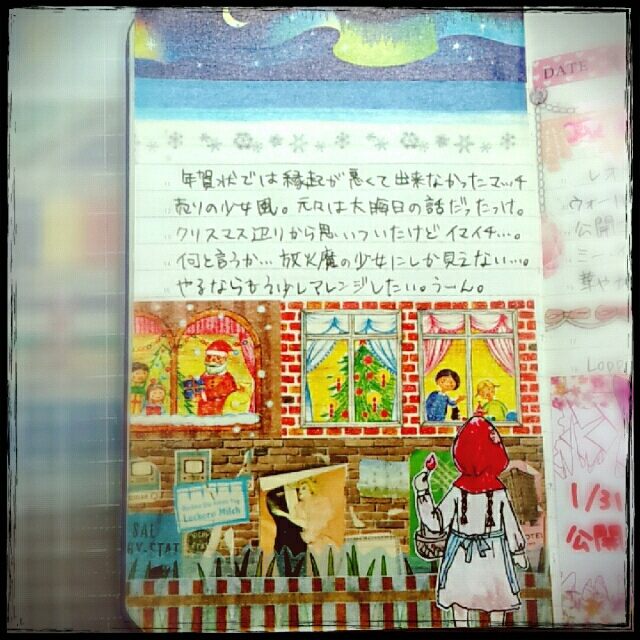 年賀状では縁起が悪くて出来なかったマッチ
売りの少女風。元々は大晦日の話だったっけ。
クリスマス辺りから思いついたけどイマイチ…。
何と言うか…放火魔の少女にしか見えない…。
やるならもう少しアレンジしたい。うーん。
Lockere Milch
SAL
DATE
レオ
ウォー
公開
ミー
華や
1/31
公開